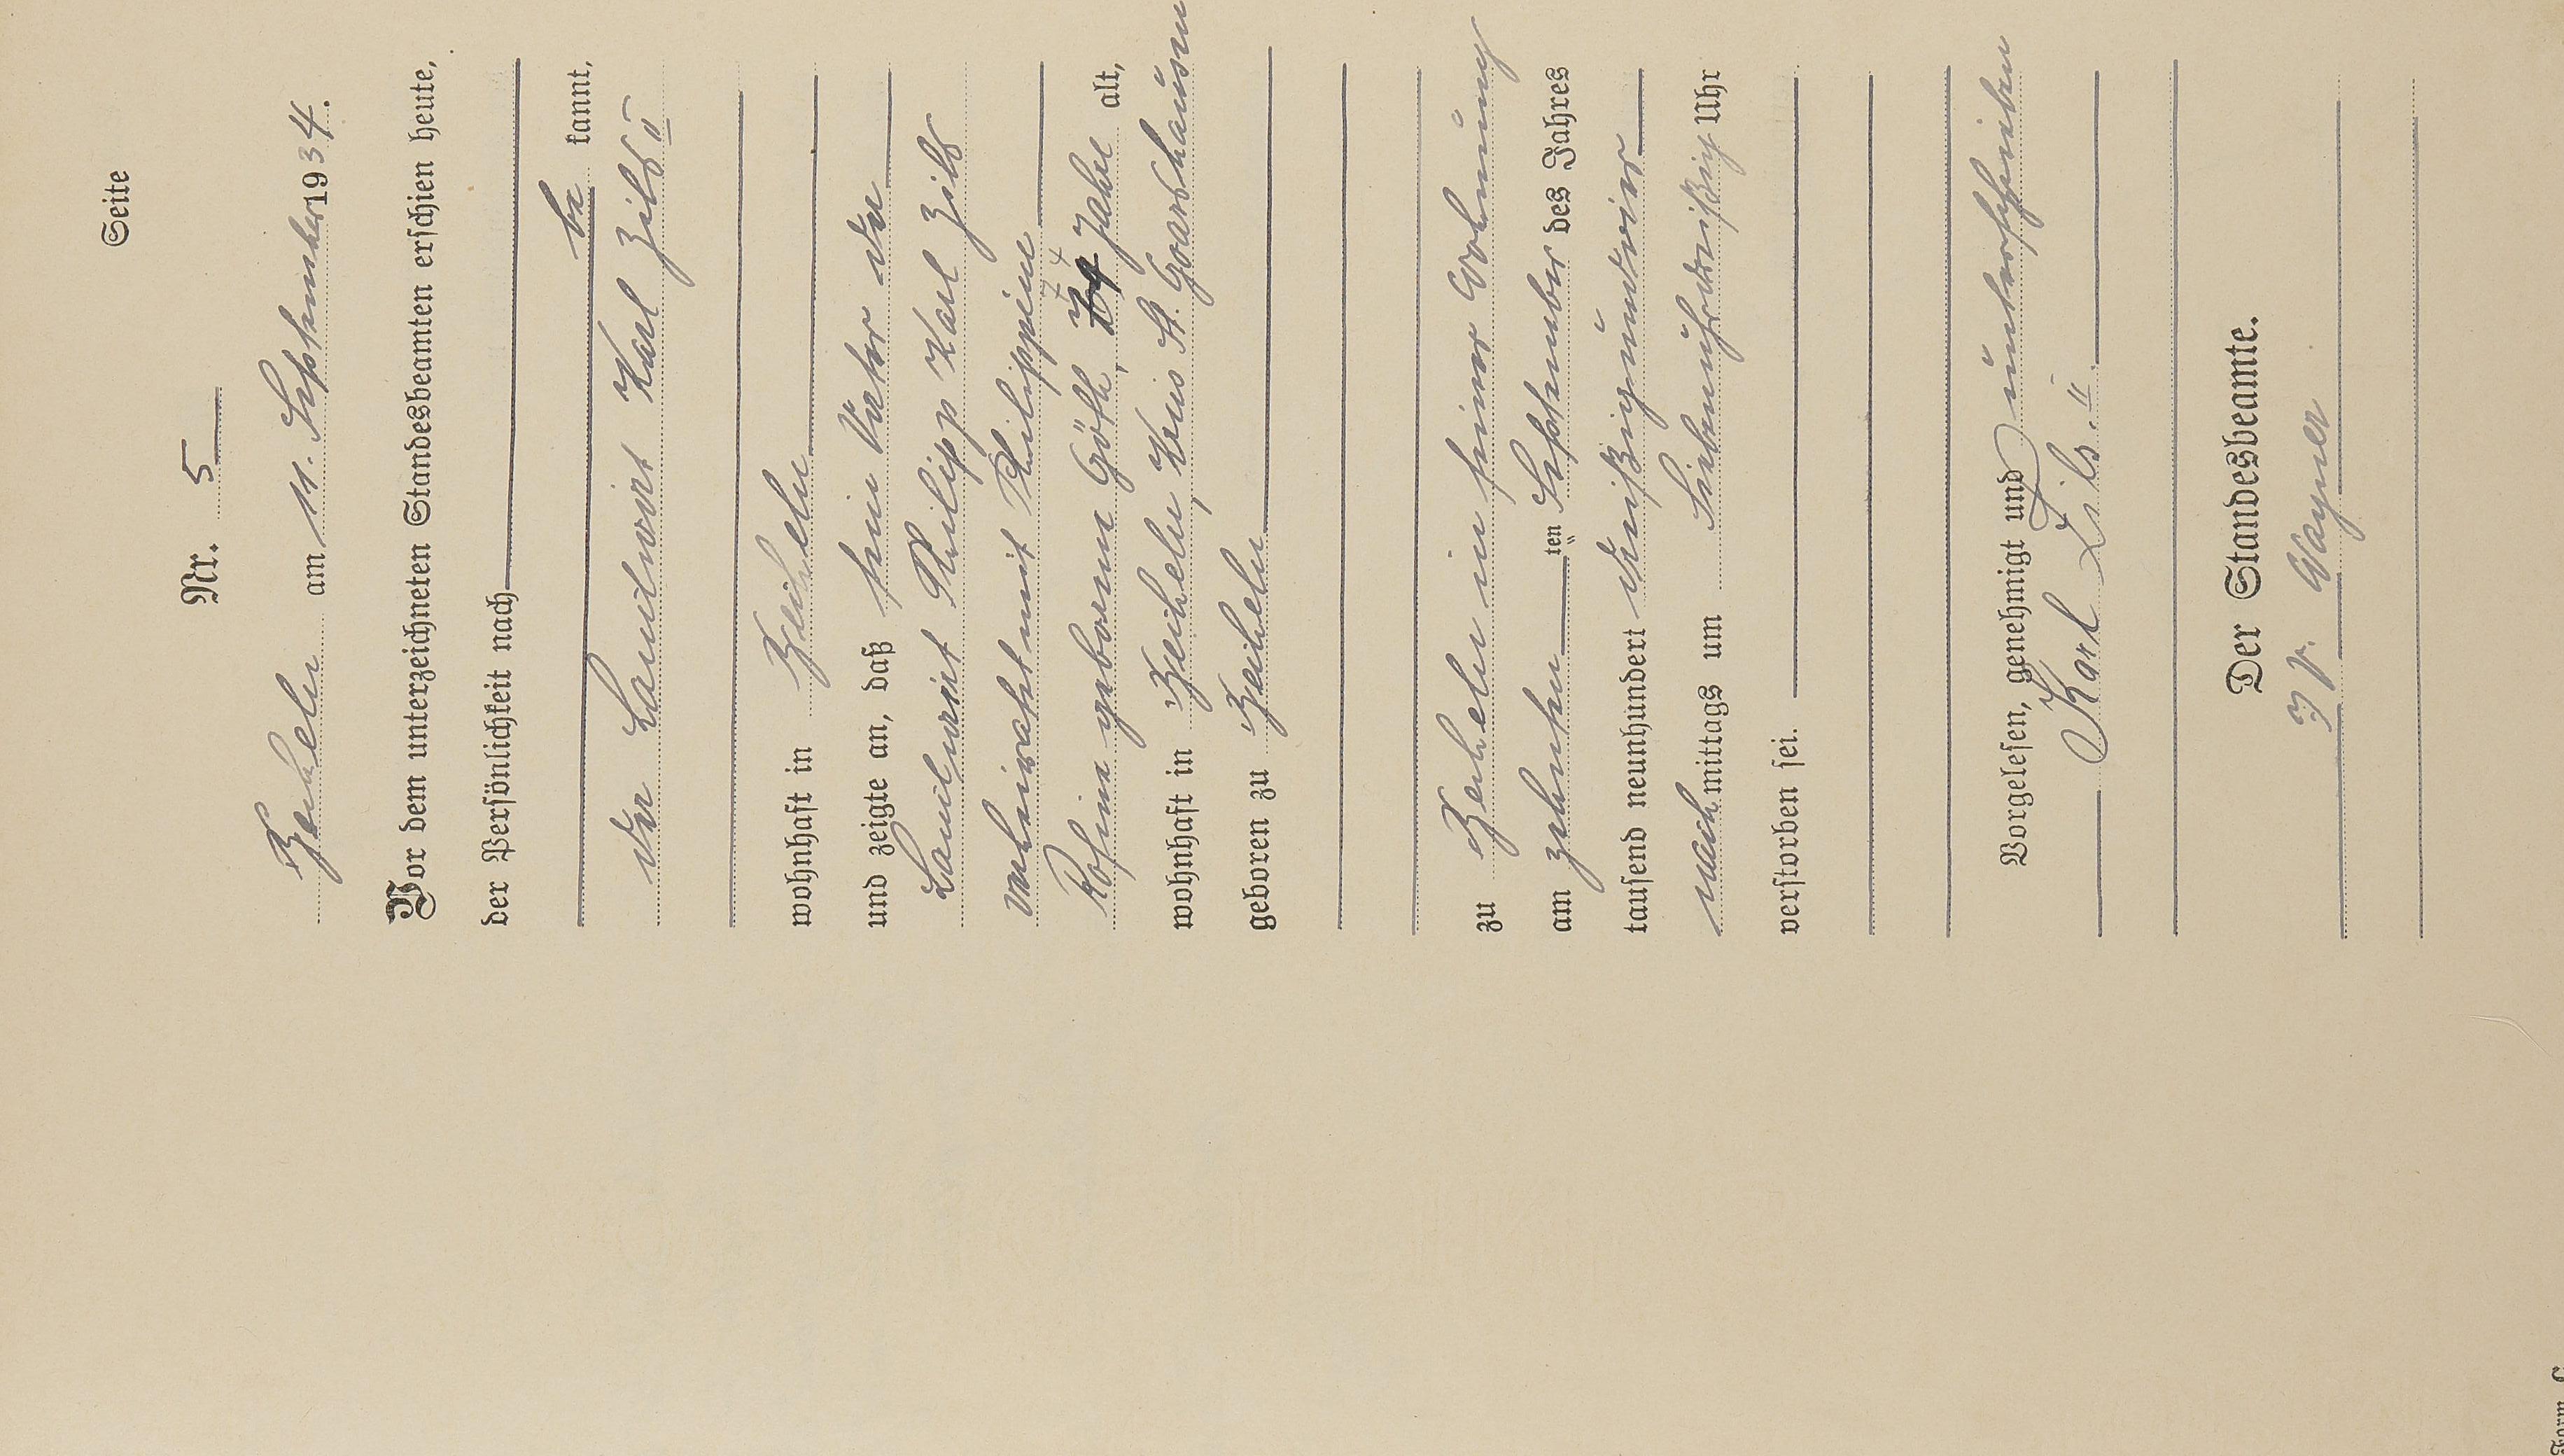 Seite
Nr. 5
Becheln am 11. September 1934.
Vor dem unterzeichneten Standesbeamten erschien heute,
der Persönlichkeit nach
be kannt,
der Landwirt Karl Zils II
wohnhaft in Becheln
und zeigte an, daß sein Vater der
Landwirt Philipp Karl Zils
verheiratet mit Philippine
Rosina geborene Göth, 74 Jahre alt,
wohnhaft in Becheln, Kreis St. Goarshausen
geboren zu Becheln
zu Becheln in seiner Wohnung
am zehnten ten September des Jahres
tausend neunhundert dreißigundvier
nachmittags um Siebenuhrdreißig Uhr
verstorben sei.
Vorgelesen, genehmigt und unterschrieben
Karl Zils. II.
Der Standesbeamte.
I. V. Wagner